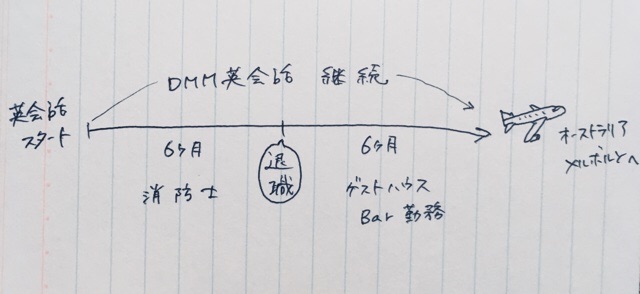 DMM英会話 継続
英会話
スタート
6ヶ月
6ヶ月
退
職
消防士
ゲストハウス
Bar 勤務
オーストラリア
メルボルンへ